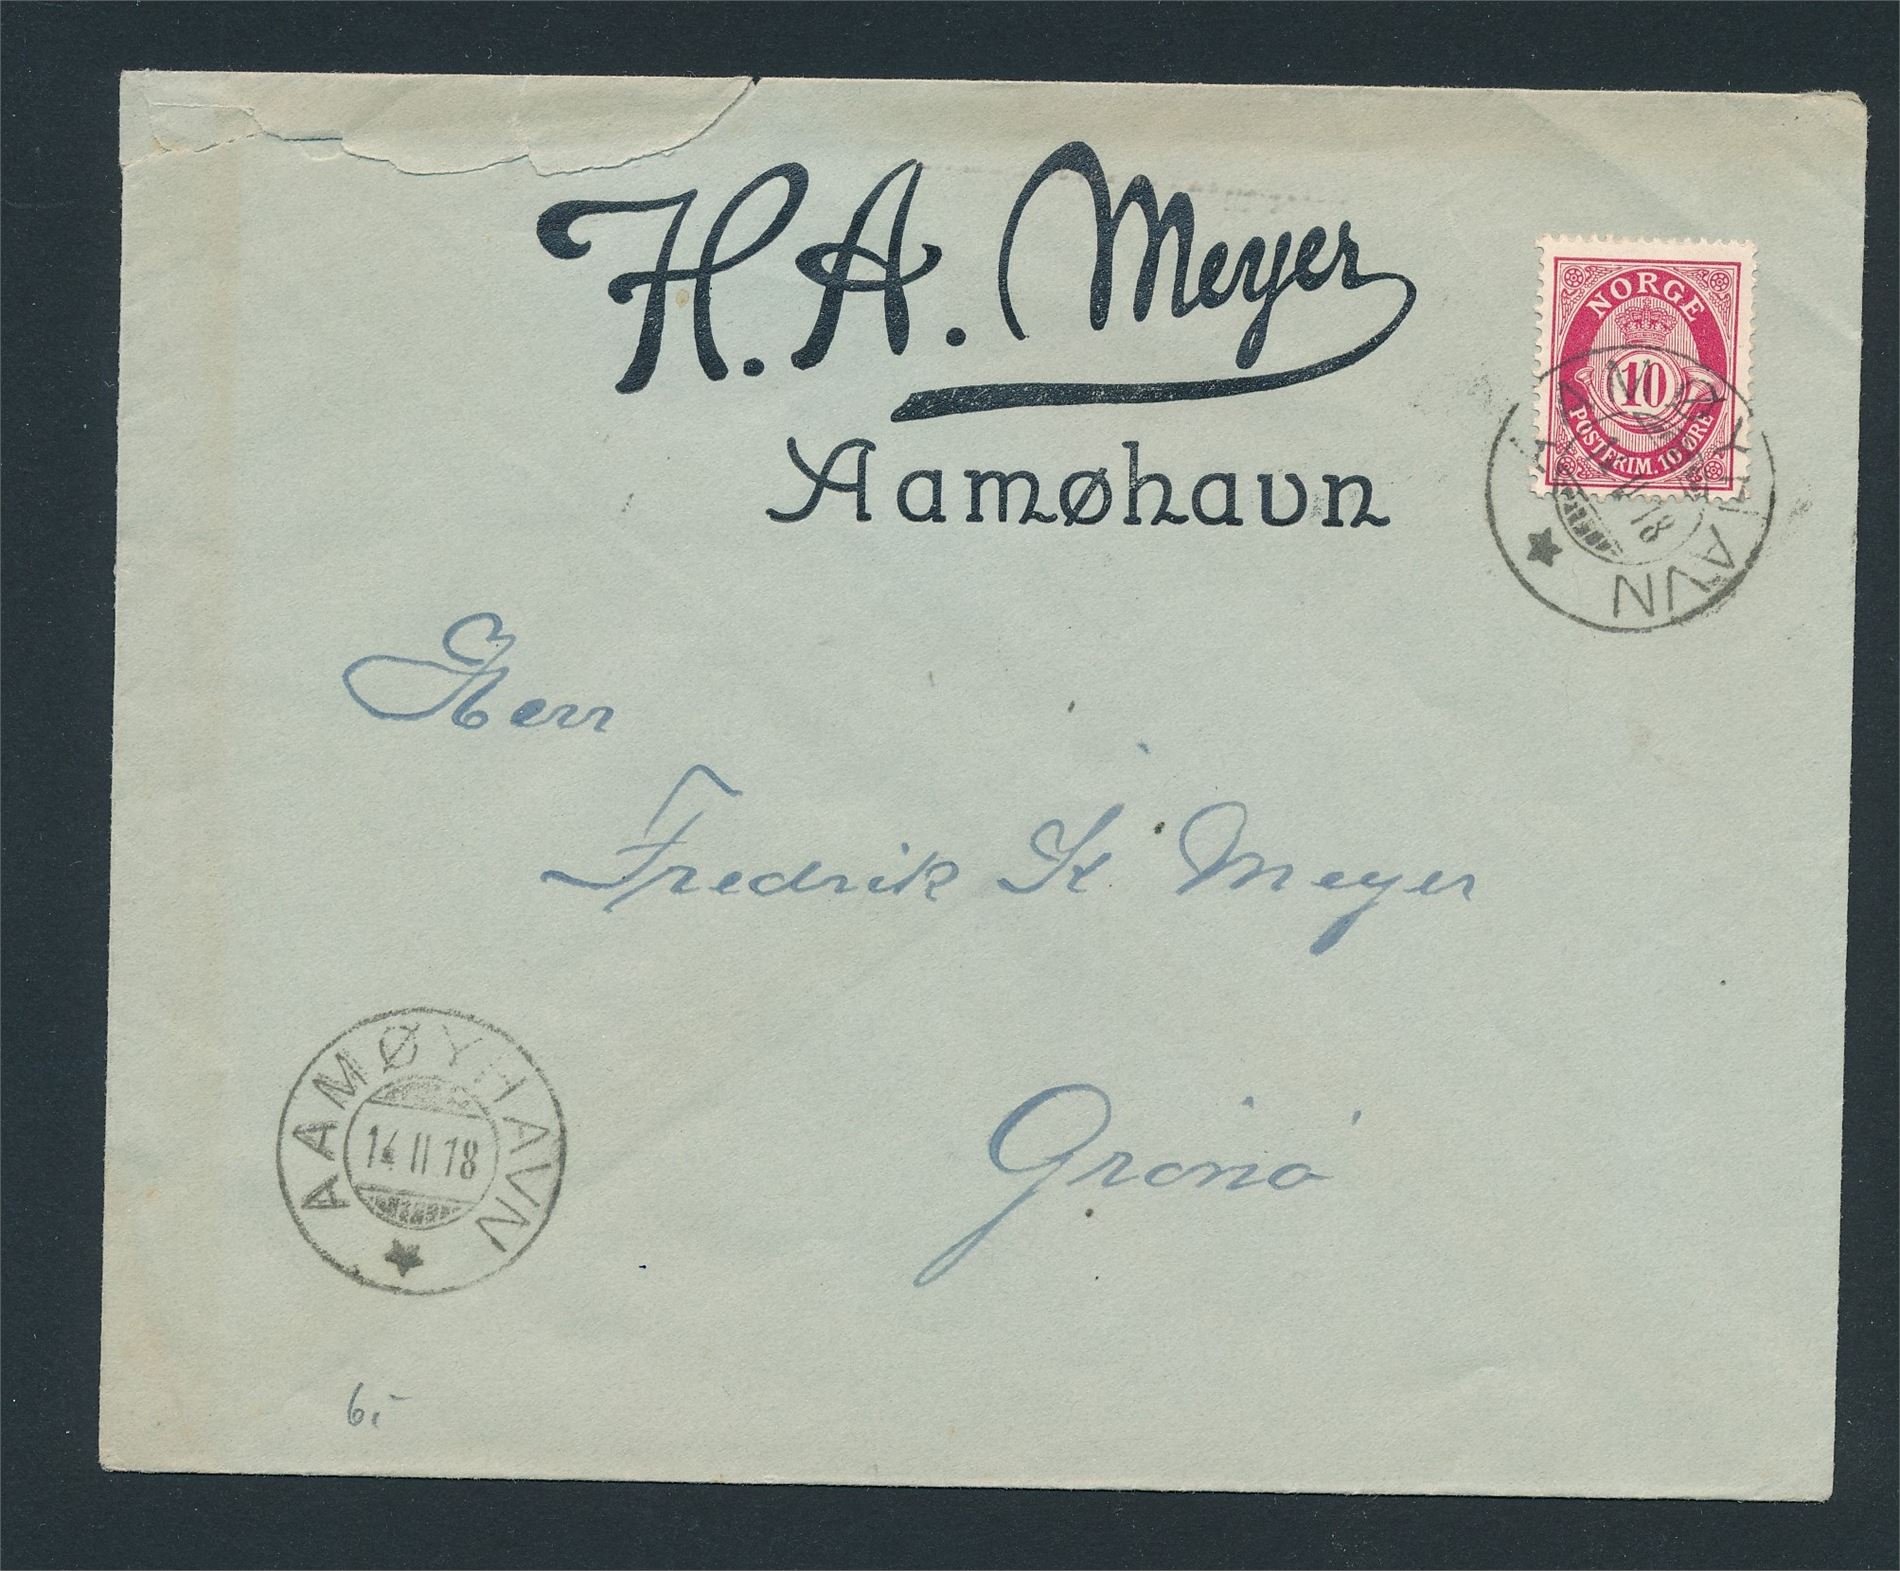 H. A. Meyer
Aamøhavn
NORGE
10
POSTFRIM. 10 ØRE
AAMØYHAVN
14 II 18
Herr
Fredrik K Meyer
Grönö
AAMØYHAVN
14 II 18
6,-